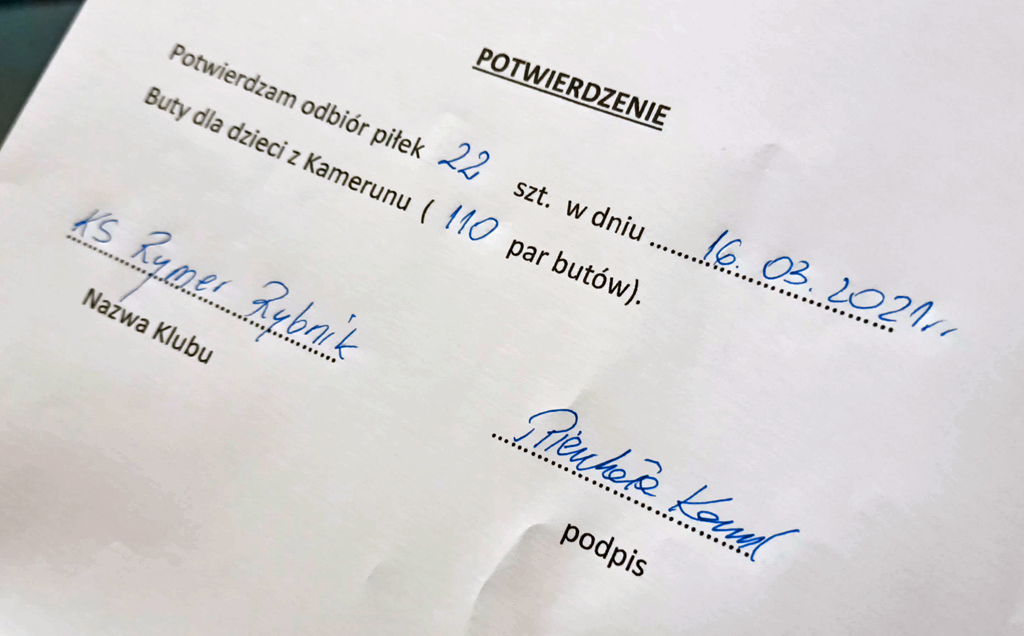 POTWIERDZENIE
Potwierdzam odbiór piłek 22 szt. w dniu ........ 16.03.2021r.
Buty dla dzieci z Kamerunu ( 110 par butów).
KS Rymer Rybnik
Nazwa Klubu
podpis